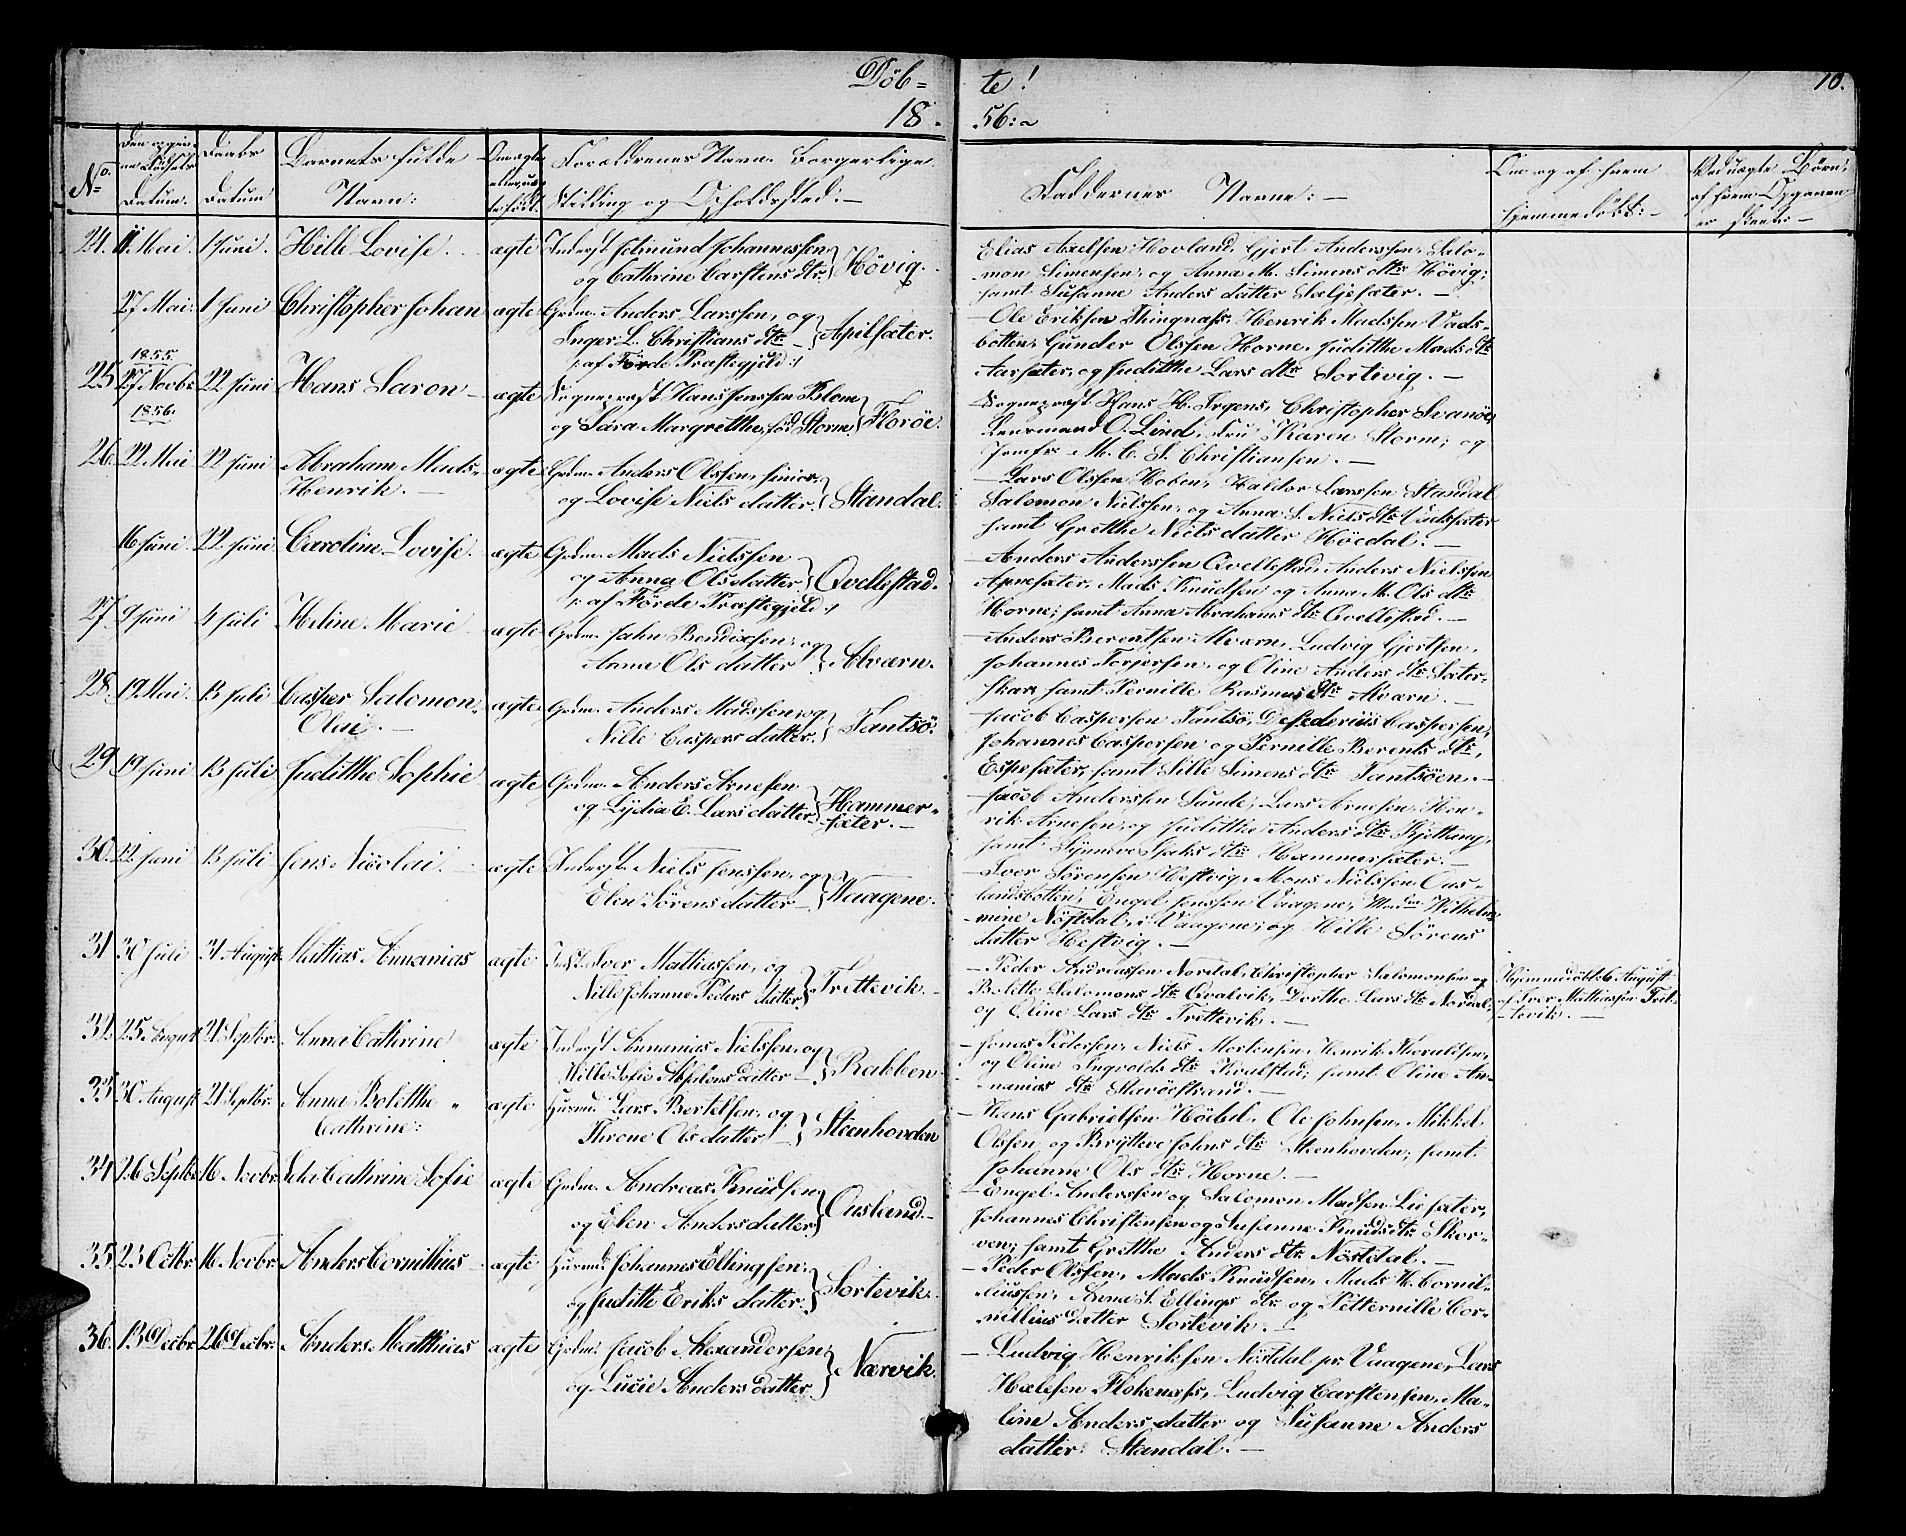 Döb= te!
10.
18. 56:
No.
Datum.
Daabs Datum
Barnets fulde Navn:
Forældrenes Navn. Borgerlige
Stilling og Opholdssted:—
Faddernes Navne:—
Om og af hvem
hjemmedöbt:—
24. 11 Mai 1 Juni. Hille Lovise. ægte Inderst Edmund Johannessen
og Cathrine Carstens dtr. } Hövig.
Elias Axelsen Hovland, Gjert Anderssen, Salo-
mon Simensen, og Anna M. Simens dtr Hövig;
samt Susanne Anders datter Sæljesæter.—
27 Mai. 1 Juni Christopher Johan ægte Grdm. Anders Larssen, og
Inger L. Christians dtr } Apilsæter.
/: af Förde Præstegjeld:/
Ole Eriksen Thingnæss, Henrik Madssen Vads-
botten, Gunder Olssen Horne, Judithe Mads dtr
Aarsæter, og Judithe Lars dtr Sortevig.—
1855.
25 27 Novbr. 22 Juni Hans Saron — ægte Sognepræst Hans Jenssen Blom
1856.
og Sara Margrethe, föd Storm } Floröe.
Sognepræst Hans H. Irgens, Christopher Svanöe,
Lensmand O. Lind, Fru Karen Storm; og
Jomfr. M. C. S. Christiansen.—
26. 22 Mai 22 Juni Abraham Mads- ægte Grdm. Anders Olssen, senior,
Henrik.— og Lovise Niels datter. } Standal.
—Lars Olssen Hoven, Haldor Larssen Standal
Salomon Nielssen, og Anna S. Niels dtr
samt Grethe Niels datter Höedal.—
16 Juni 22 Juni Caroline Lovise. ægte Grdm. Mads Nielssen
og Anna Olsdatter } Qvellestad.
/: af Förde Præstegjeld:/
—Anders Anderssen Qvellestad, Anders Nielssen
Apnesæter, Mads Knudsen og Anna M. Ols dtr
Horne; samt Anna Abrahams dtr Qvellestad.—
27. 9 Juni 4 Juli Heline Marie ægte Grdm. Jahn Bendixsen, og
Anna Ols datter } Alværn.
—Anders Berentsen Alværn, Ludvig Gjertsen,
Johannes Torjersen, og Oline Anders dtr Sæter-
skar, samt Pernille Rasmus dtr Alværn.—
28. 19 Mai. 13 Juli Casper Salomon- ægte Grdm. Anders Madssen, og
Olai.— Nille Caspers datter. } Tantsö.
Jacob Caspersen Tantsö, Desederius Caspersen,
Johannes Caspersen og Pernille Berents dtr,
Espesæter, samt Sille Simens dtr Tantsöen.—
29 19 Juni 13 Juli Judithe Sophie ægte Grdm. Anders Arnesen
og Lydia E. Lars datter. } Hammer-
sæter.—
—Jacob Anderssen Sunde, Lars Arnesen, Hen-
rik Arnesen, og Judithe Anders dtr
samt Synneve Isaks dtr Hammersæter.—
30. 12 Juni 13 Juli Jens Nicolai.— ægte Inderst Niels Jenssen, og
Elen Sörens datter } Vaagene.
—Iver Sörensen Hestvig, Mons Nielssen Ous-
landsbotten, Engel Jenssen Vaagene, Wilhel-
mine Nöstdal, i Vaagene; og Hille Sörens
datter Hestvig.—
31 30 Juli 31 August. Mathias Annanias ægte Iver Mathiassen, og
Nille Johanne Peders datter } Trettevik.
—Peder Andreassen Nordal, Christopher Salomonsen og
Bolette Salomons dtr Qvalvik, Dorthe Lars dtr Nordal,
og Oline Lars dtr Trettevik.—
Hjemmedöbt 6 August
af Iver Mathiassen Tret-
tevik.—
32. 25 August 21 Septbr. Anna Cathrine ægte Inderst Annanias Nielssen, og
Hille Sofie Absalons datter } Rabben
—Jonas Pedersen, Niels Mortensen, Henrik Thoraldsen,
og Oline Ingvolds dtr Kralstad; samt Oline An-
nanias dtr Maröestrand.—
33 30 August 21 Septbr. Anna Bolethe ægte Husmd Lars Bertelsen, og
Cathrine: Throne Ols datter } Steenhovden
—Hans Gabrielsen Ole Johnsen, Mikkel
Olssen og Brytteve Johns dtr Steenhovden; samt
Johanne Ols dtr Horne.—
34 26 Septbr 16 Novbr. Ida Cathrine Sofie ægte Grdm. Andreas Knudsen
og Elen Anders datter } Ousland—
—Engel Anderssen og Salomon Madsen Liesæter,
Johannes Christensen og Susanne Knuds dtr Skor-
ven; samt Grethe Anders dtr Nöstdal.—
35. 23 Octbr. 16 Novbr. Anders Cornillius ægte Husmd Johannes Ellingsen,
og Juditte Eriks datter. } Sortevik.
—Peder Olssen, Mads Knudsen, Mads H. Cornil-
liussen, Anna S. Ellings dtr og Petternille Cor-
nillius datter Sortevik.—
36. 13 Decbr. 26 Decbr. Anders Matthias ægte Grdm. Jacob Alexandersen,
og Lucie Anders datter } Nærvik.
—Ludvig Henriksen Nöstdal pr. Vaagene, Lars
Halsen Flokenæss, Ludvig Carstensen, Ma-
line Anders datter og Susanne Anders
datter Standal.—